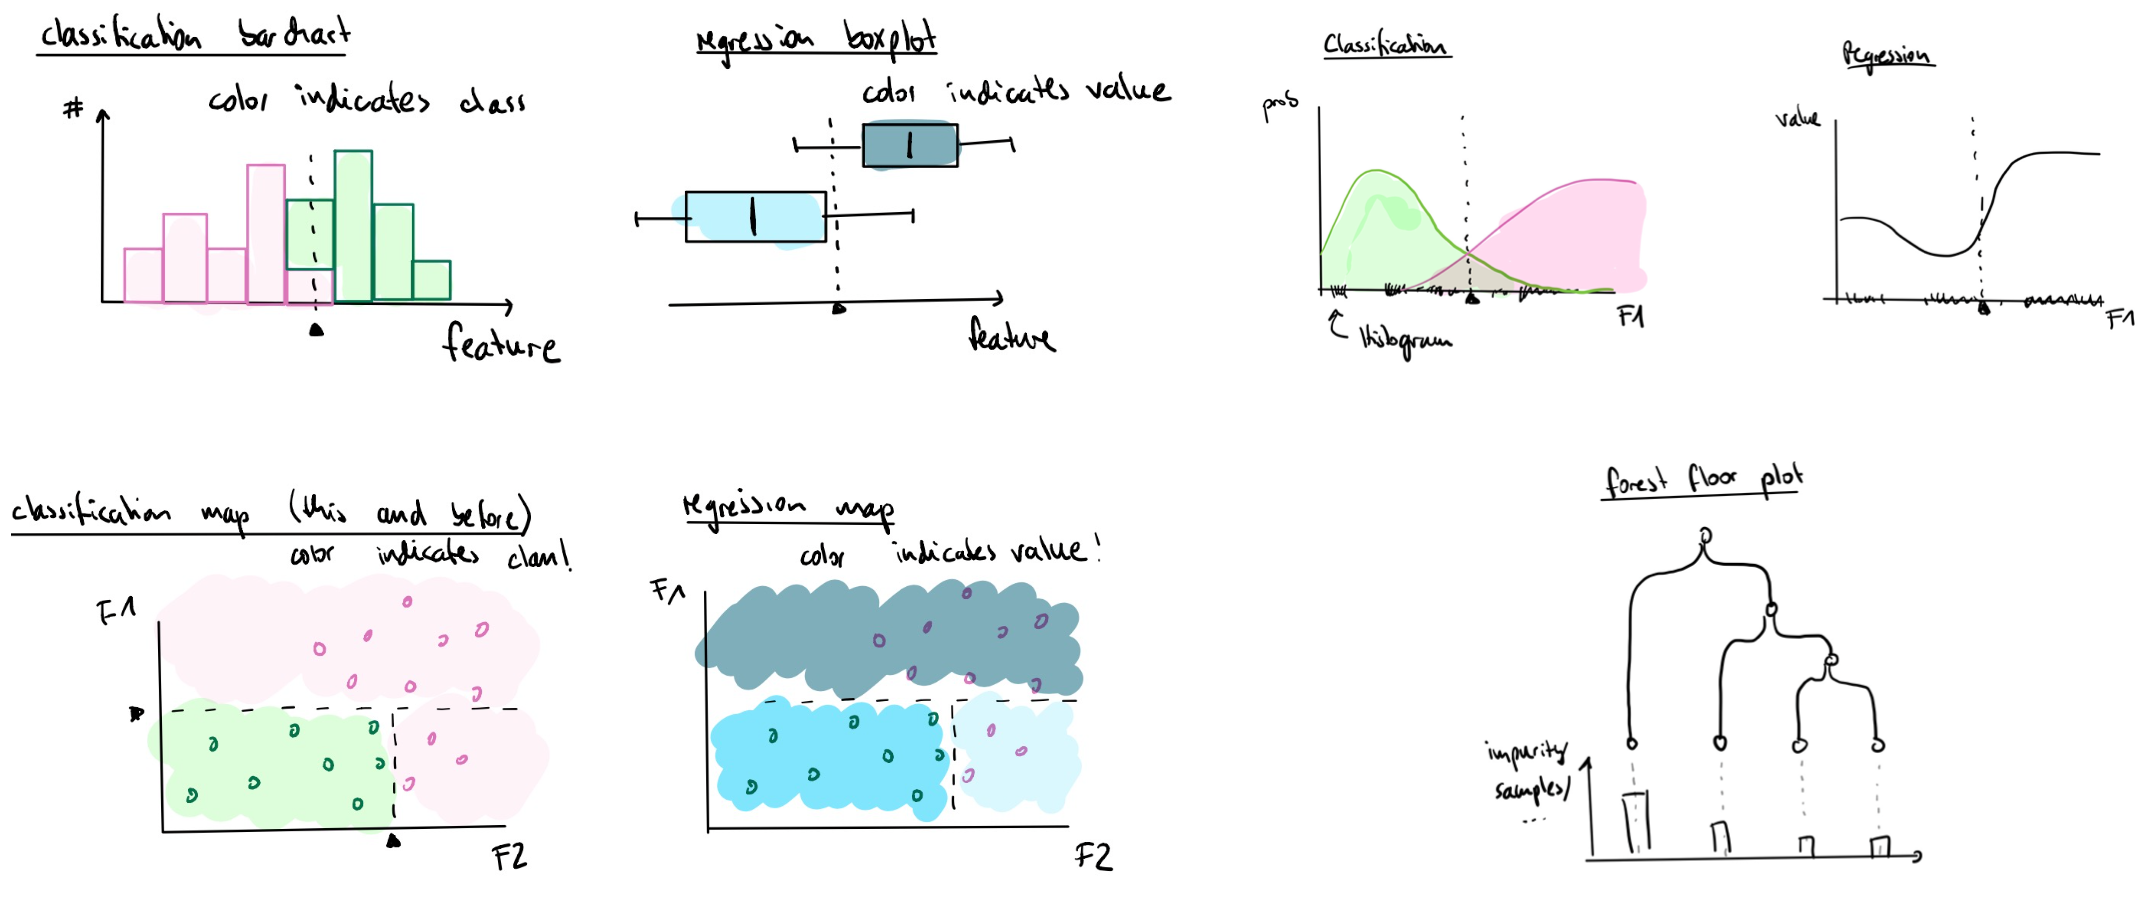 classification barchart
color indicates class
#
feature
regression boxplot
color indicates value
feature
Classification
prob
F1
Histogram
Regression
value
F1
classification map (this and before)
color indicates class!
F1
F2
regression map
color indicates value!
F1
F2
forest floor plot
impurity/
samples/
...